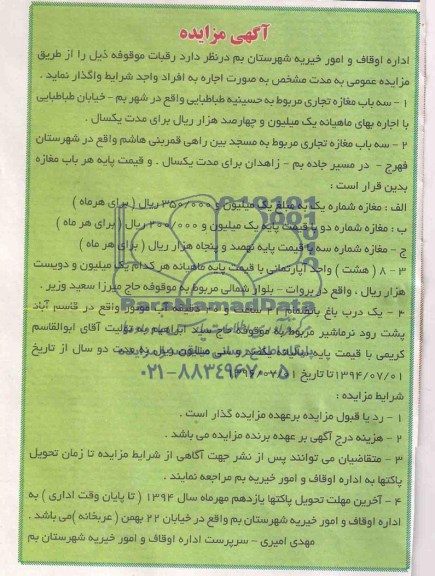 آگهی مزایده
اداره اوقاف و امور خیریه شهرستان بم درنظر دارد رقبات موقوفه ذیل را از طریق
مزایده عمومی به مدت مشخص به صورت اجاره به افراد واجد شرایط واگذار نماید .
۱ – سه باب مغازه تجاری مربوط به حسینیه طباطبایی واقع در شهر بم – خیابان طباطبایی
با اجاره بهای ماهیانه یک میلیون و چهارصد هزار ریال برای مدت یکسال .
۲ – سه باب مغازه تجاری مربوط به مسجد بین راهی قمربنی هاشم واقع در شهرستان
فهرج – در مسیر جاده بم – زاهدان برای مدت یکسال . و قیمت پایه هر باب مغازه
بدین قرار است :
الف : مغازه شماره یک به مبلغ یک میلیون و ۳۵۰/۰۰۰ ریال ( برای هرماه )
ب : مغازه شماره دو با قیمت پایه یک میلیون و ۲۰۰/۰۰۰ ریال ( برای هر ماه )
ج – مغازه شماره سه با قیمت پایه نهصد و پنجاه هزار ریال ( برای هر ماه )
۳ – ۸ ( هشت ) واحد آپارتمانی با قیمت پایه ماهیانه هر کدام یک میلیون و دویست
هزار ریال ، واقع در بروات – بلوار شمالی مربوط به موقوفه حاج میرزا سعید وزیر .
ParsNamadData
۴ – یک درب باغ بانضمام ساعت و دقیقه آب موتور واقع در قاسم آباد
پشت رود نرماشیر مربوط به موقوفه حاج سید ابراهیم به تولیت آقای ابوالقاسم
کریمی با قیمت پایه سالیانه یکصد و سی میلیون ریال به مدت دو سال از تاریخ
۱۳۹۴/۰۷/۰۱ تا تاریخ
۰۲۱-۸۸۳۴۹۶۷۰
شرایط مزایده :
۱ – رد یا قبول مزایده برعهده مزایده گذار است .
۲ – هزینه درج آگهی بر عهده برنده مزایده می باشد .
۳ – متقاضیان می توانند پس از نشر جهت آگاهی از شرایط مزایده تا زمان تحویل
پاکتها به اداره اوقاف و امور خیریه بم مراجعه نمایند .
۴ – آخرین مهلت تحویل پاکتها یازدهم مهرماه سال ۱۳۹۴ ( تا پایان وقت اداری ) به
اداره اوقاف و امور خیریه شهرستان بم واقع در خیابان ۲۲ بهمن ( عربخانه )می باشد .
مهدی امیری – سرپرست اداره اوقاف و امور خیریه شهرستان بم